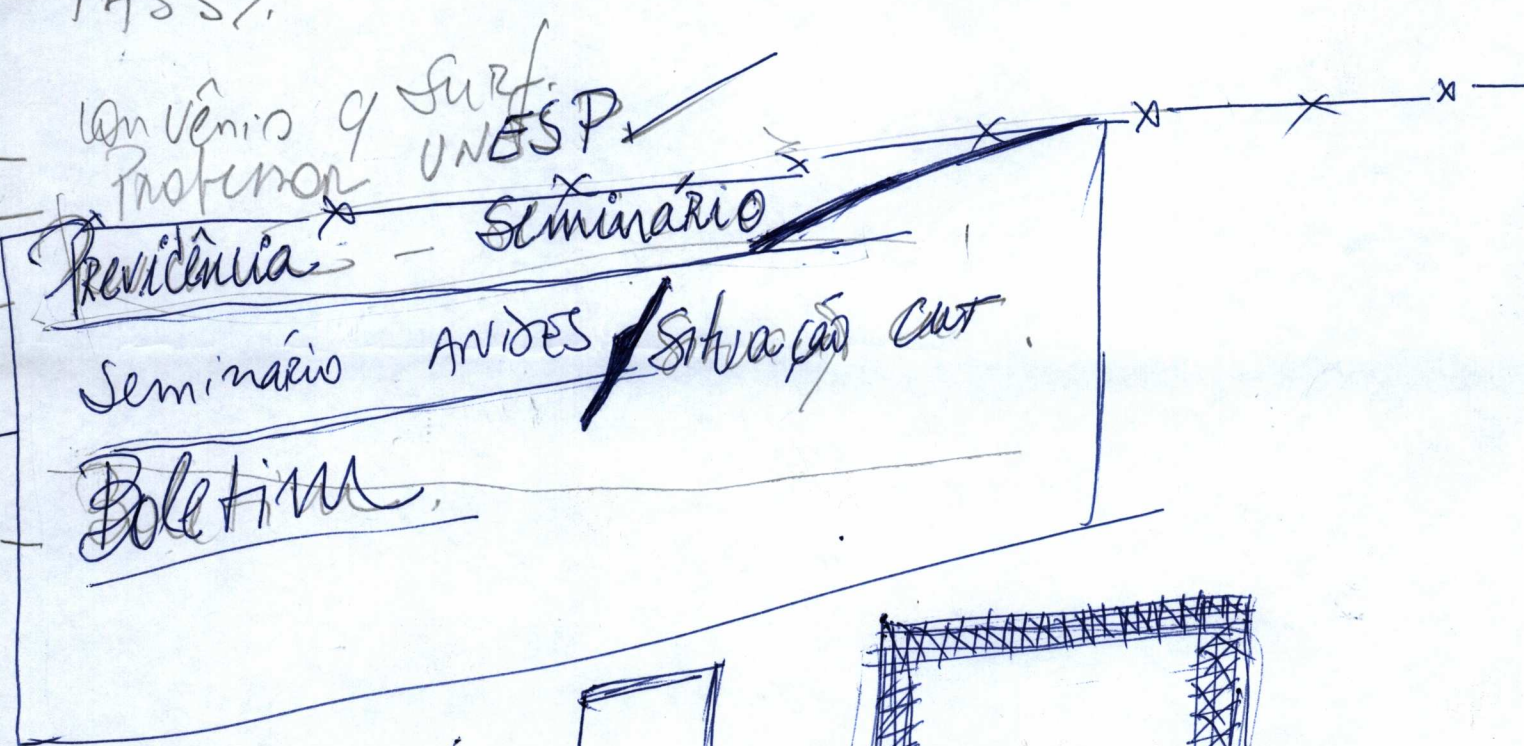 Convênio
Professor UNESP
Previdência - Seminário
Seminário ANDES / Situação CUT.
Boletim